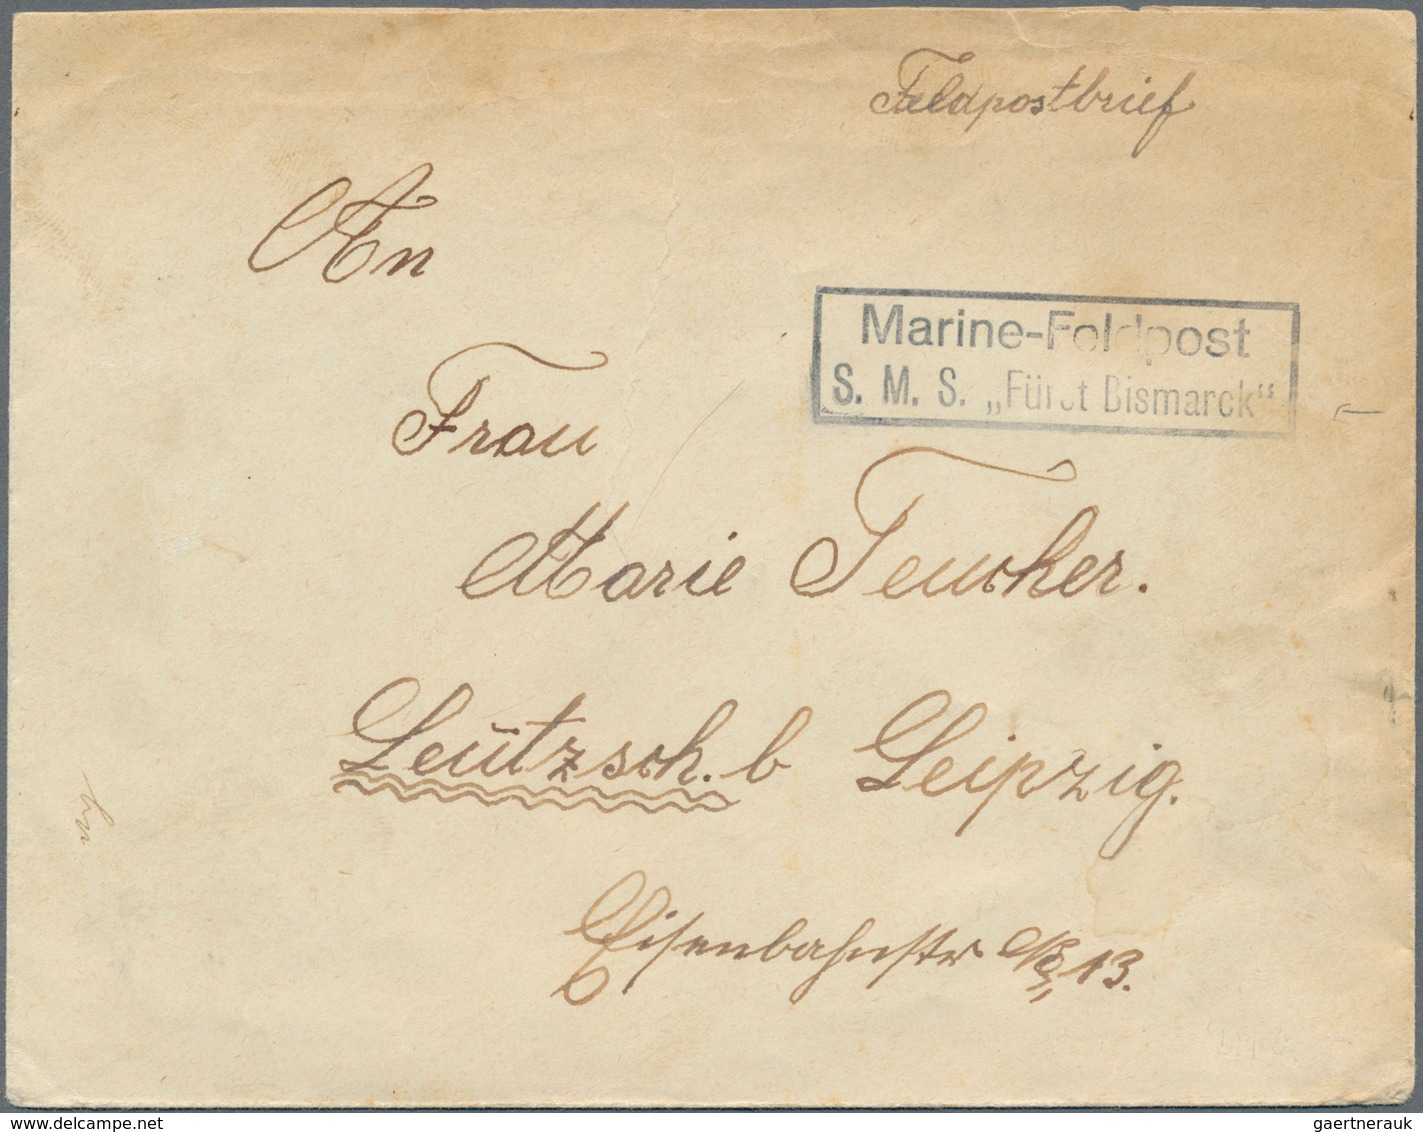 Feldpostbrief
An
Marine-Feldpost
S. M. S. „Fürst Bismarck“
Frau
Marie Teucher.
Leützsch. b Leipzig.
Eisenbahnstr No 13.
gaertnerauk